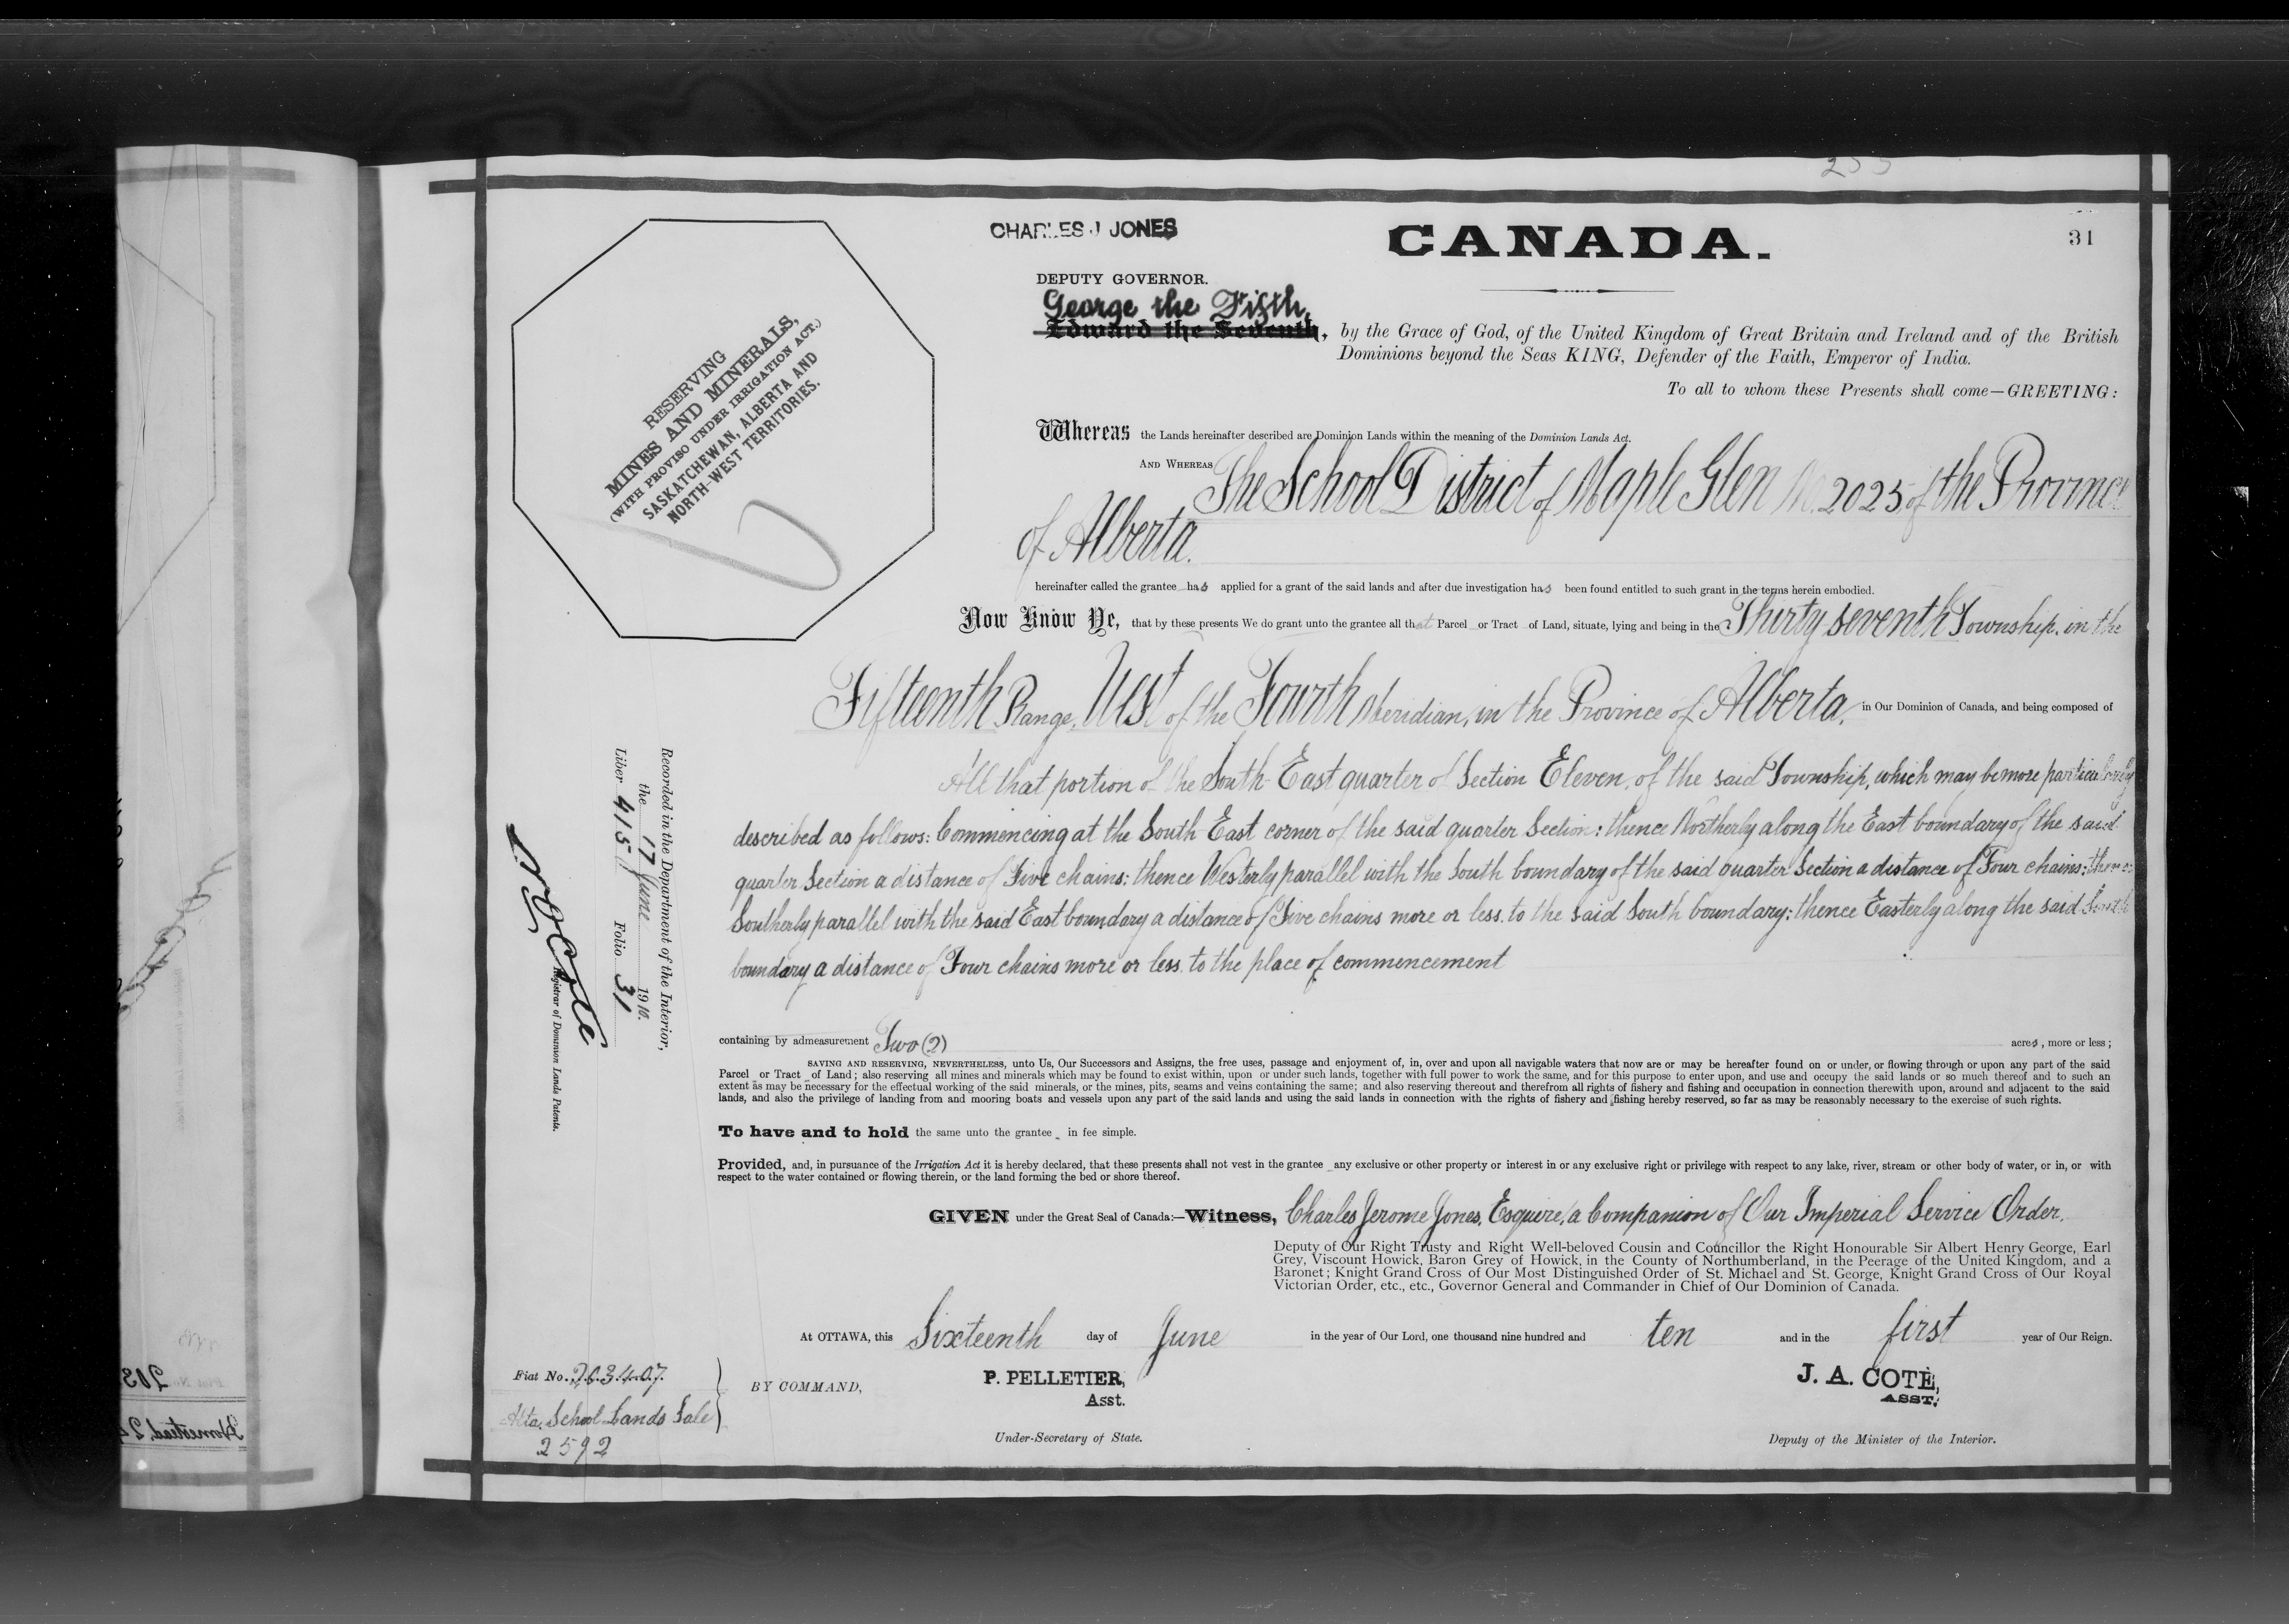 CHARLES J JONES
CANADA.
31
DEPUTY GOVERNOR.
George the Fifth,
Edward the Seventh, by the Grace of God, of the United Kingdom of Great Britain and Ireland and of the British
Dominions beyond the Seas KING, Defender of the Faith, Emperor of India.
To all to whom these Presents shall come—GREETING:
RESERVING
MINES AND MINERALS,
(WITH PROVISO UNDER IRRIGATION ACT.)
SASKATCHEWAN, ALBERTA AND
NORTH-WEST TERRITORIES.
Whereas the Lands hereinafter described are Dominion Lands within the meaning of the Dominion Lands Act.
AND WHEREAS The School District of Maple Glen No. 2025, of the Province
of Alberta.
hereinafter called the grantee has applied for a grant of the said lands and after due investigation has been found entitled to such grant in the terms herein embodied.
Now Know Ye, that by these presents We do grant unto the grantee all that Parcel or Tract of Land, situate, lying and being in the Thirty seventh Township, in the
Fifteenth Range, West of the Fourth Meridian, in the Province of Alberta, in Our Dominion of Canada, and being composed of
All that portion of the South East quarter of Section Eleven, of the said Township, which may be more particularly
described as follows: Commencing at the South East corner of the said quarter Section: thence Northerly along the East boundary of the said
quarter Section a distance of Five chains: thence Westerly parallel with the South boundary of the said quarter Section a distance of Four chains: thence
Southerly parallel with the said East boundary a distance of Five chains more or less, to the said South boundary: thence Easterly along the said South
boundary a distance of Four chains more or less, to the place of commencement
containing by admeasurement Two (2) acres, more or less;
SAVING AND RESERVING, NEVERTHELESS, unto Us, Our Successors and Assigns, the free uses, passage and enjoyment of, in, over and upon all navigable waters that now are or may be hereafter found on or under, or flowing through or upon any part of the said
Parcel or Tract of Land; also reserving all mines and minerals which may be found to exist within, upon or under such lands, together with full power to work the same, and for this purpose to enter upon, and use and occupy the said lands or so much thereof and to such an
extent as may be necessary for the effectual working of the said minerals, or the mines, pits, seams and veins containing the same; and also reserving thereout and therefrom all rights of fishery and fishing and occupation in connection therewith upon, around and adjacent to the said
lands, and also the privilege of landing from and mooring boats and vessels upon any part of the said lands and using the said lands in connection with the rights of fishery and fishing hereby reserved, so far as may be reasonably necessary to the exercise of such rights.
To have and to hold the same unto the grantee in fee simple.
Provided, and, in pursuance of the Irrigation Act it is hereby declared, that these presents shall not vest in the grantee any exclusive or other property or interest in or any exclusive right or privilege with respect to any lake, river, stream or other body of water, or in, or with
respect to the water contained or flowing therein, or the land forming the bed or shore thereof.
GIVEN under the Great Seal of Canada:—Witness, Charles Jerome Jones, Esquire, a Companion of Our Imperial Service Order.
Deputy of Our Right Trusty and Right Well-beloved Cousin and Councillor the Right Honourable Sir Albert Henry George, Earl
Grey, Viscount Howick, Baron Grey of Howick, in the County of Northumberland, in the Peerage of the United Kingdom, and a
Baronet; Knight Grand Cross of Our Most Distinguished Order of St. Michael and St. George, Knight Grand Cross of Our Royal
Victorian Order, etc., etc., Governor General and Commander in Chief of Our Dominion of Canada.
At OTTAWA, this Sixteenth day of June in the year of Our Lord, one thousand nine hundred and ten and in the first year of Our Reign.
BY COMMAND,
P. PELLETIER,
Asst.
Under-Secretary of State.
J. A. COTÉ,
ASST.
Deputy of the Minister of the Interior.
Recorded in the Department of the Interior,
the 17 June 1910.
Liber 415 Folio 31
Registrar of Dominion Lands Patents.
Fiat No. 203407.
Alta. School Lands Sale
2592